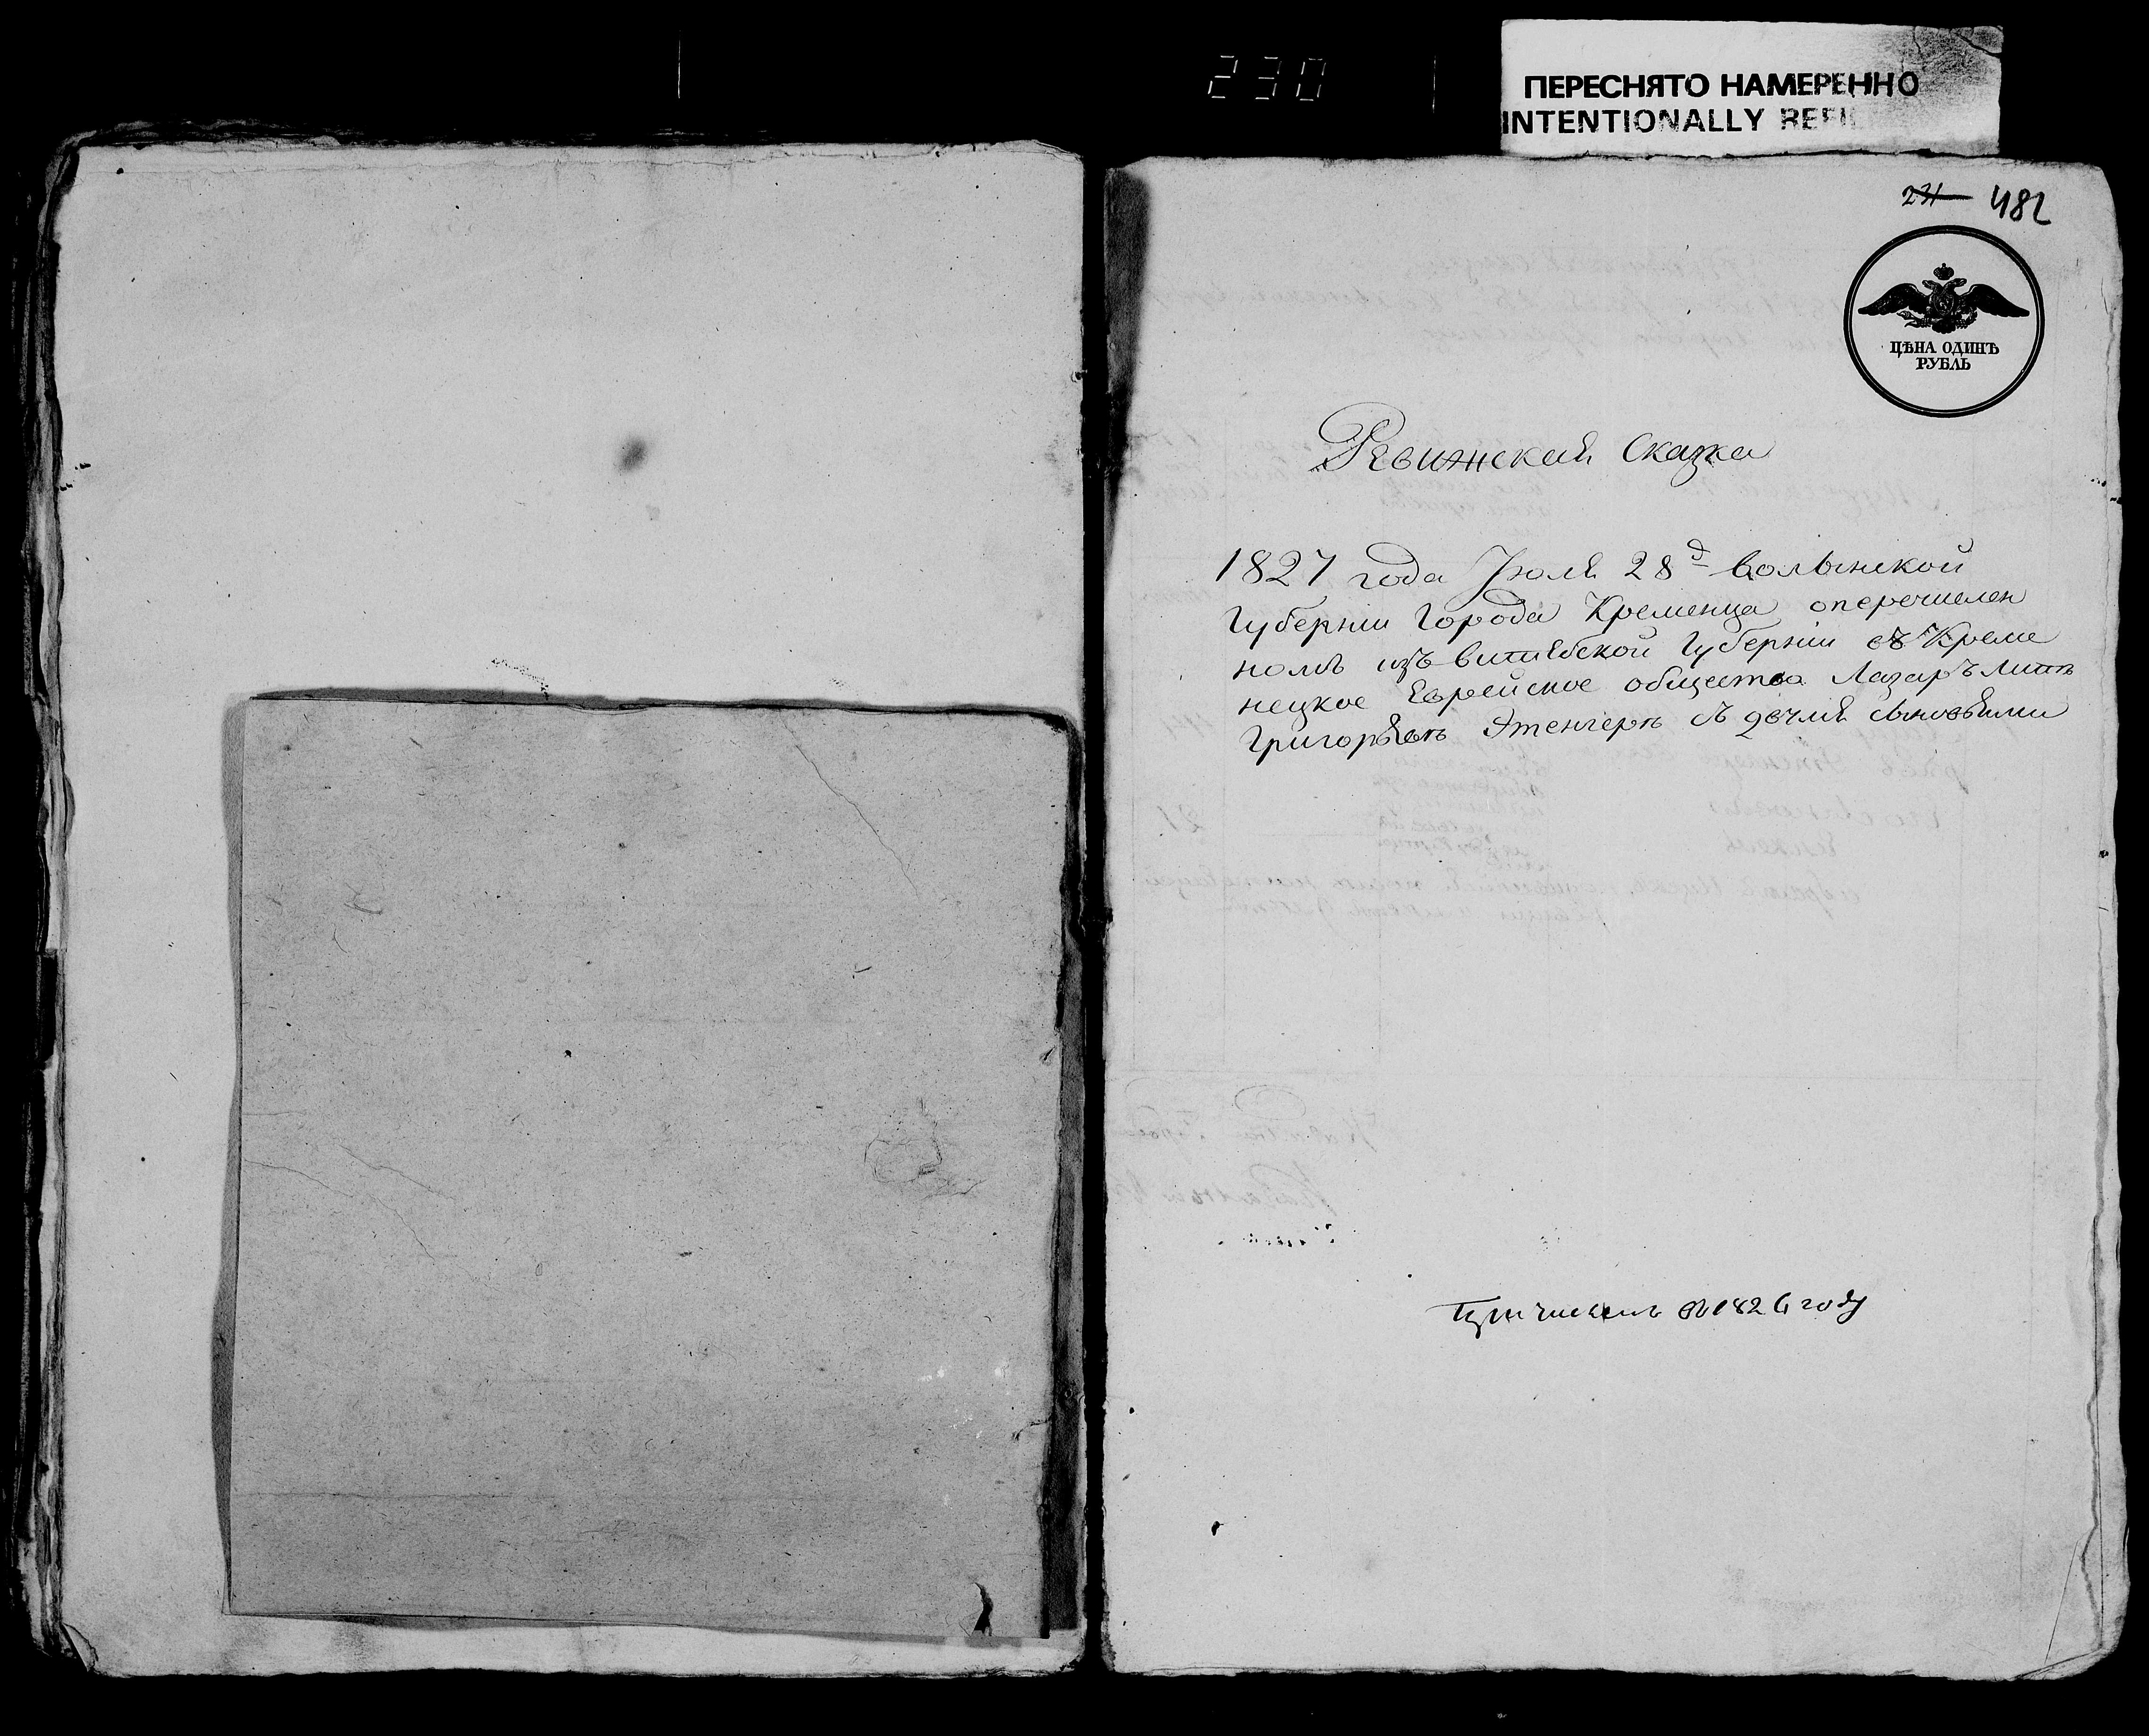 230
ПЕРЕСНЯТО НАМЕРЕННО
INTENTIONALLY REFI
231 482
ЦѢНА ОДИНЪ
РУБЛЬ
Ревижская Сказка
1827 года Іюля 28д Волынской
Губерніи Города Кременца оперечислен
номъ изъ витебской Губерніи въ Креме
нецкое Еврейское общество Лазаръ
Григорьевъ Этенгеръ съ сыновьями
Причисленъ въ 1826 году